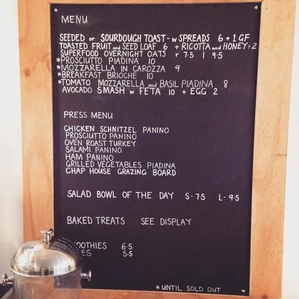 MENU
SEEDED OR SOURDOUGH TOAST - W SPREADS 6 + 1 GF
TOASTED FRUIT AND SEED LOAF 6 + RICOTTA AND HONEY + 2
SUPERFOOD OVERNIGHT OATS + 7.5 L 9.5
*PROSCIUTTO PIADINA 10
*MOZZARELLA IN CAROZZA 9
*BREAKFAST BRIOCHE 10
*TOMATO MOZZARELLA AND BASIL PIADINA 8
AVOCADO SMASH W FETA 10 + EGG 2
PRESS MENU
CHICKEN SCHNITZEL PANINO
PROSCIUTTO PANINO
OVEN ROAST TURKEY
SALAMI PANINO
HAM PANINO
GRILLED VEGETABLES PIADINA
CHAP HOUSE GRAZING BOARD
SALAD BOWL OF THE DAY S-7.5 L-9.5
BAKED TREATS SEE DISPLAY
OOTHIES 6.5
ES 5.5
*UNTIL SOLD OUT